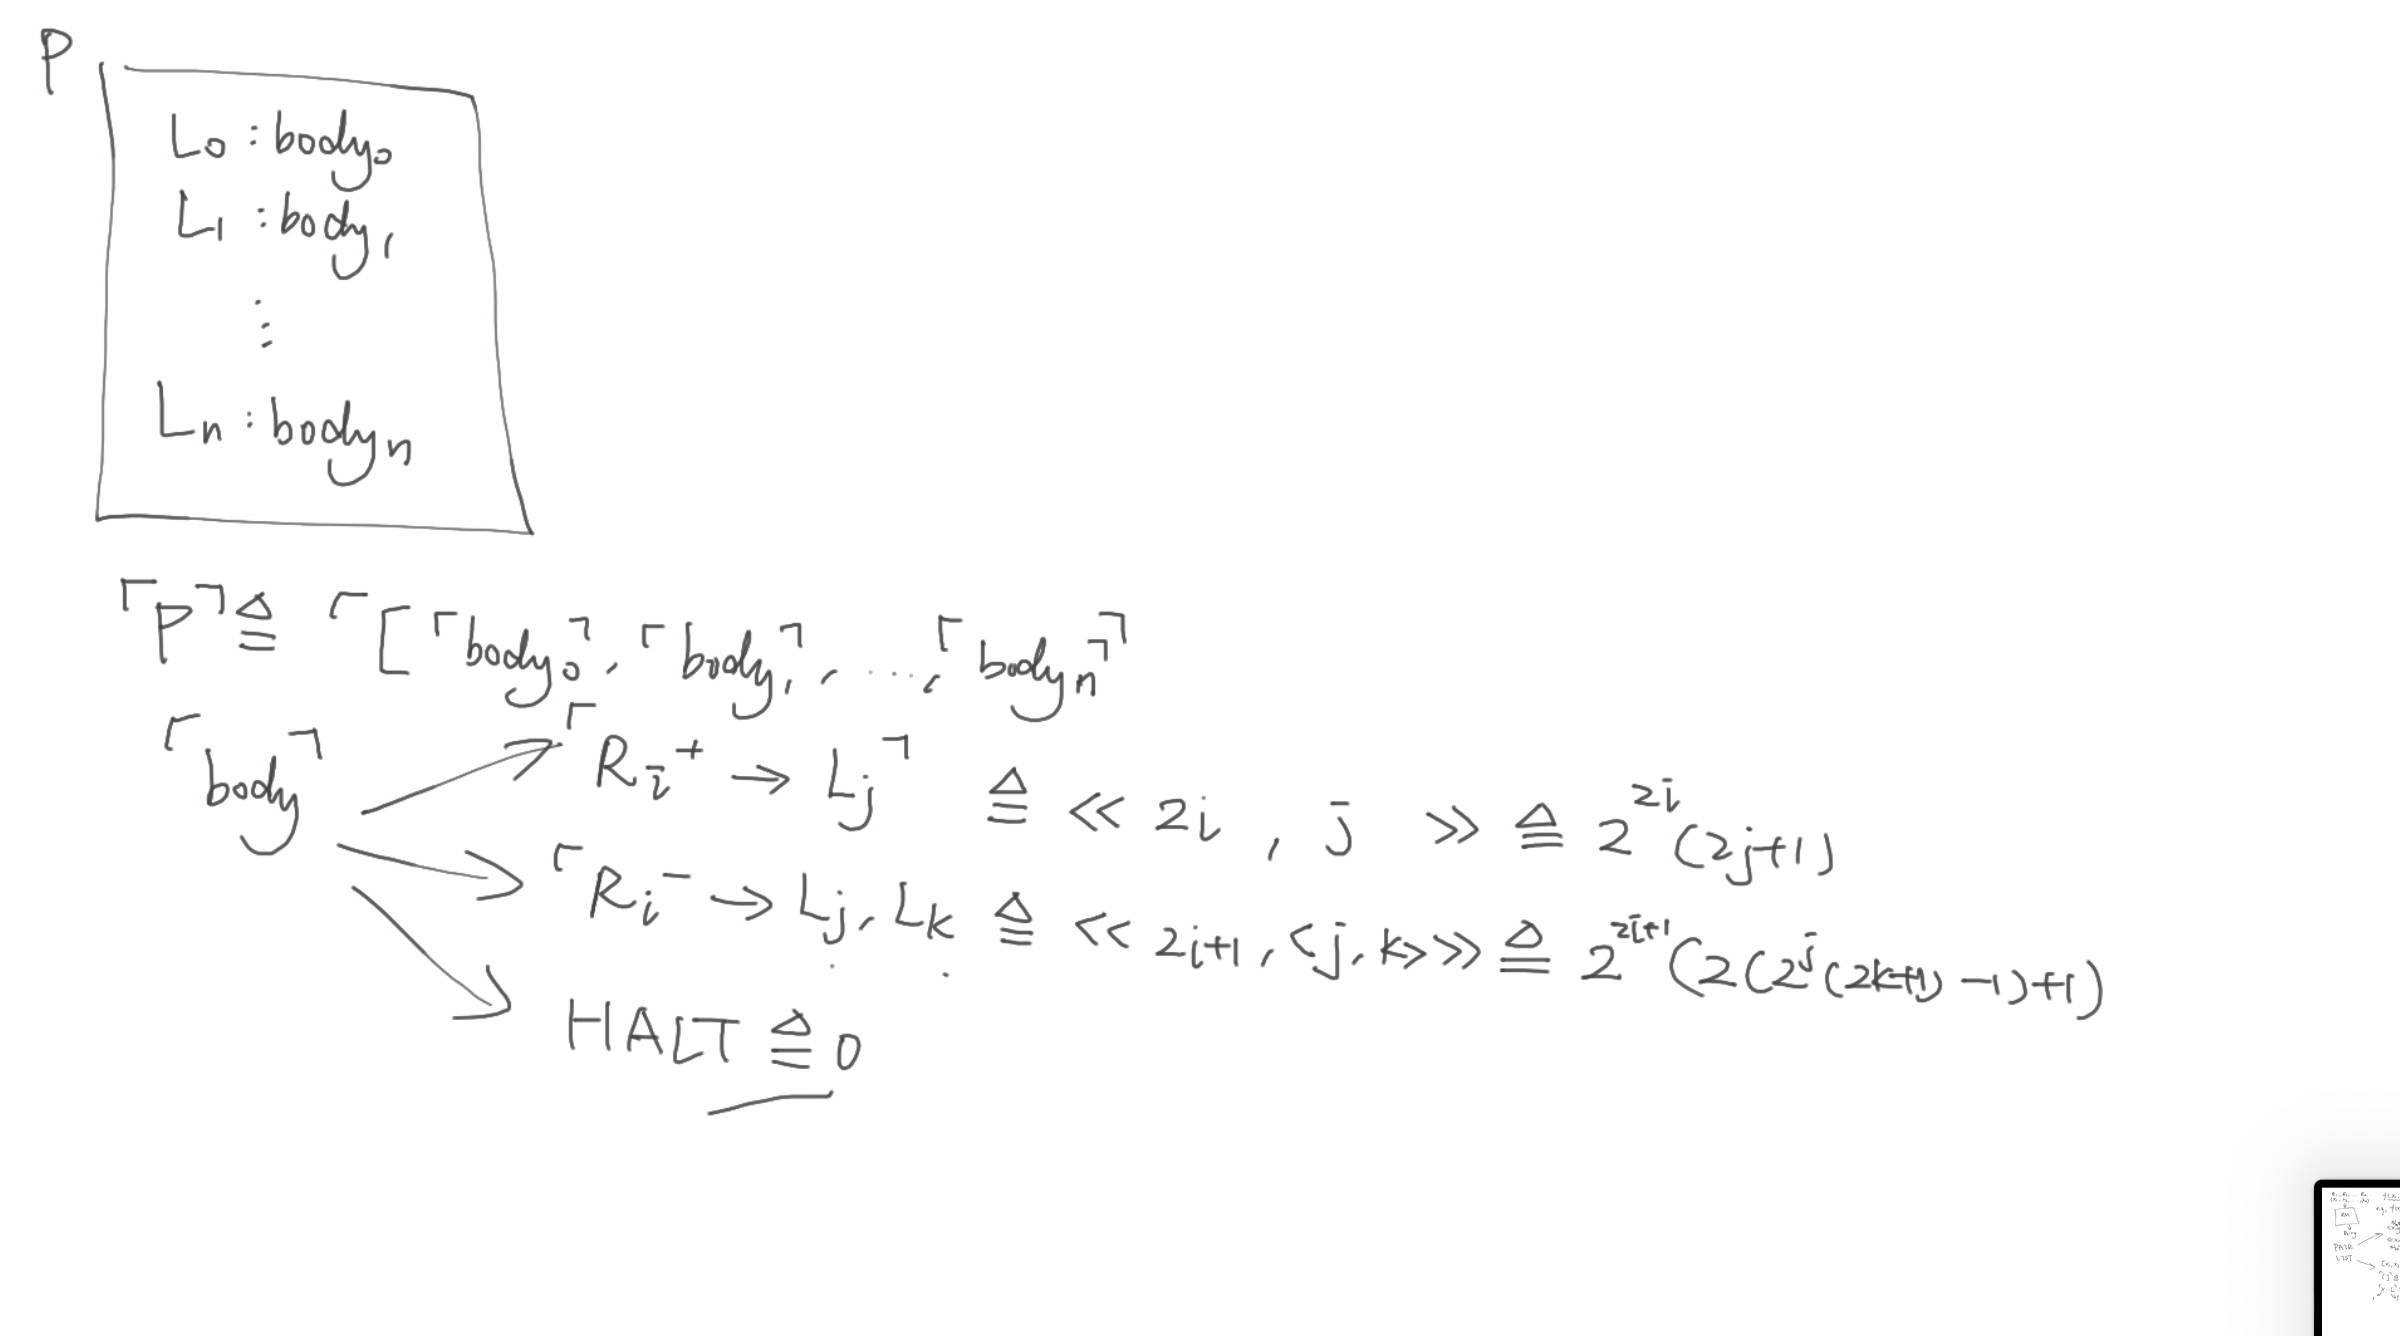 P
L₀ : body₀
L₁ : body₁
⋮
Lₙ : bodyₙ
⌜P⌝ ≜ ⌜[⌜body₀⌝, ⌜body₁⌝, ..., ⌜bodyₙ⌝⌝
⌜body⌝
⌜Rᵢ⁺ → Lⱼ⌝ ≜ << 2i , j >> ≜ 2²ⁱ(2j+1)
⌜Rᵢ⁻ → Lⱼ, Lₖ ≜ << 2i+1, <j, k>>> ≜ 2²ⁱ⁺¹(2(2ʲ(2k+1)-1)+1)
HALT ≜ 0
PAIR
LIST